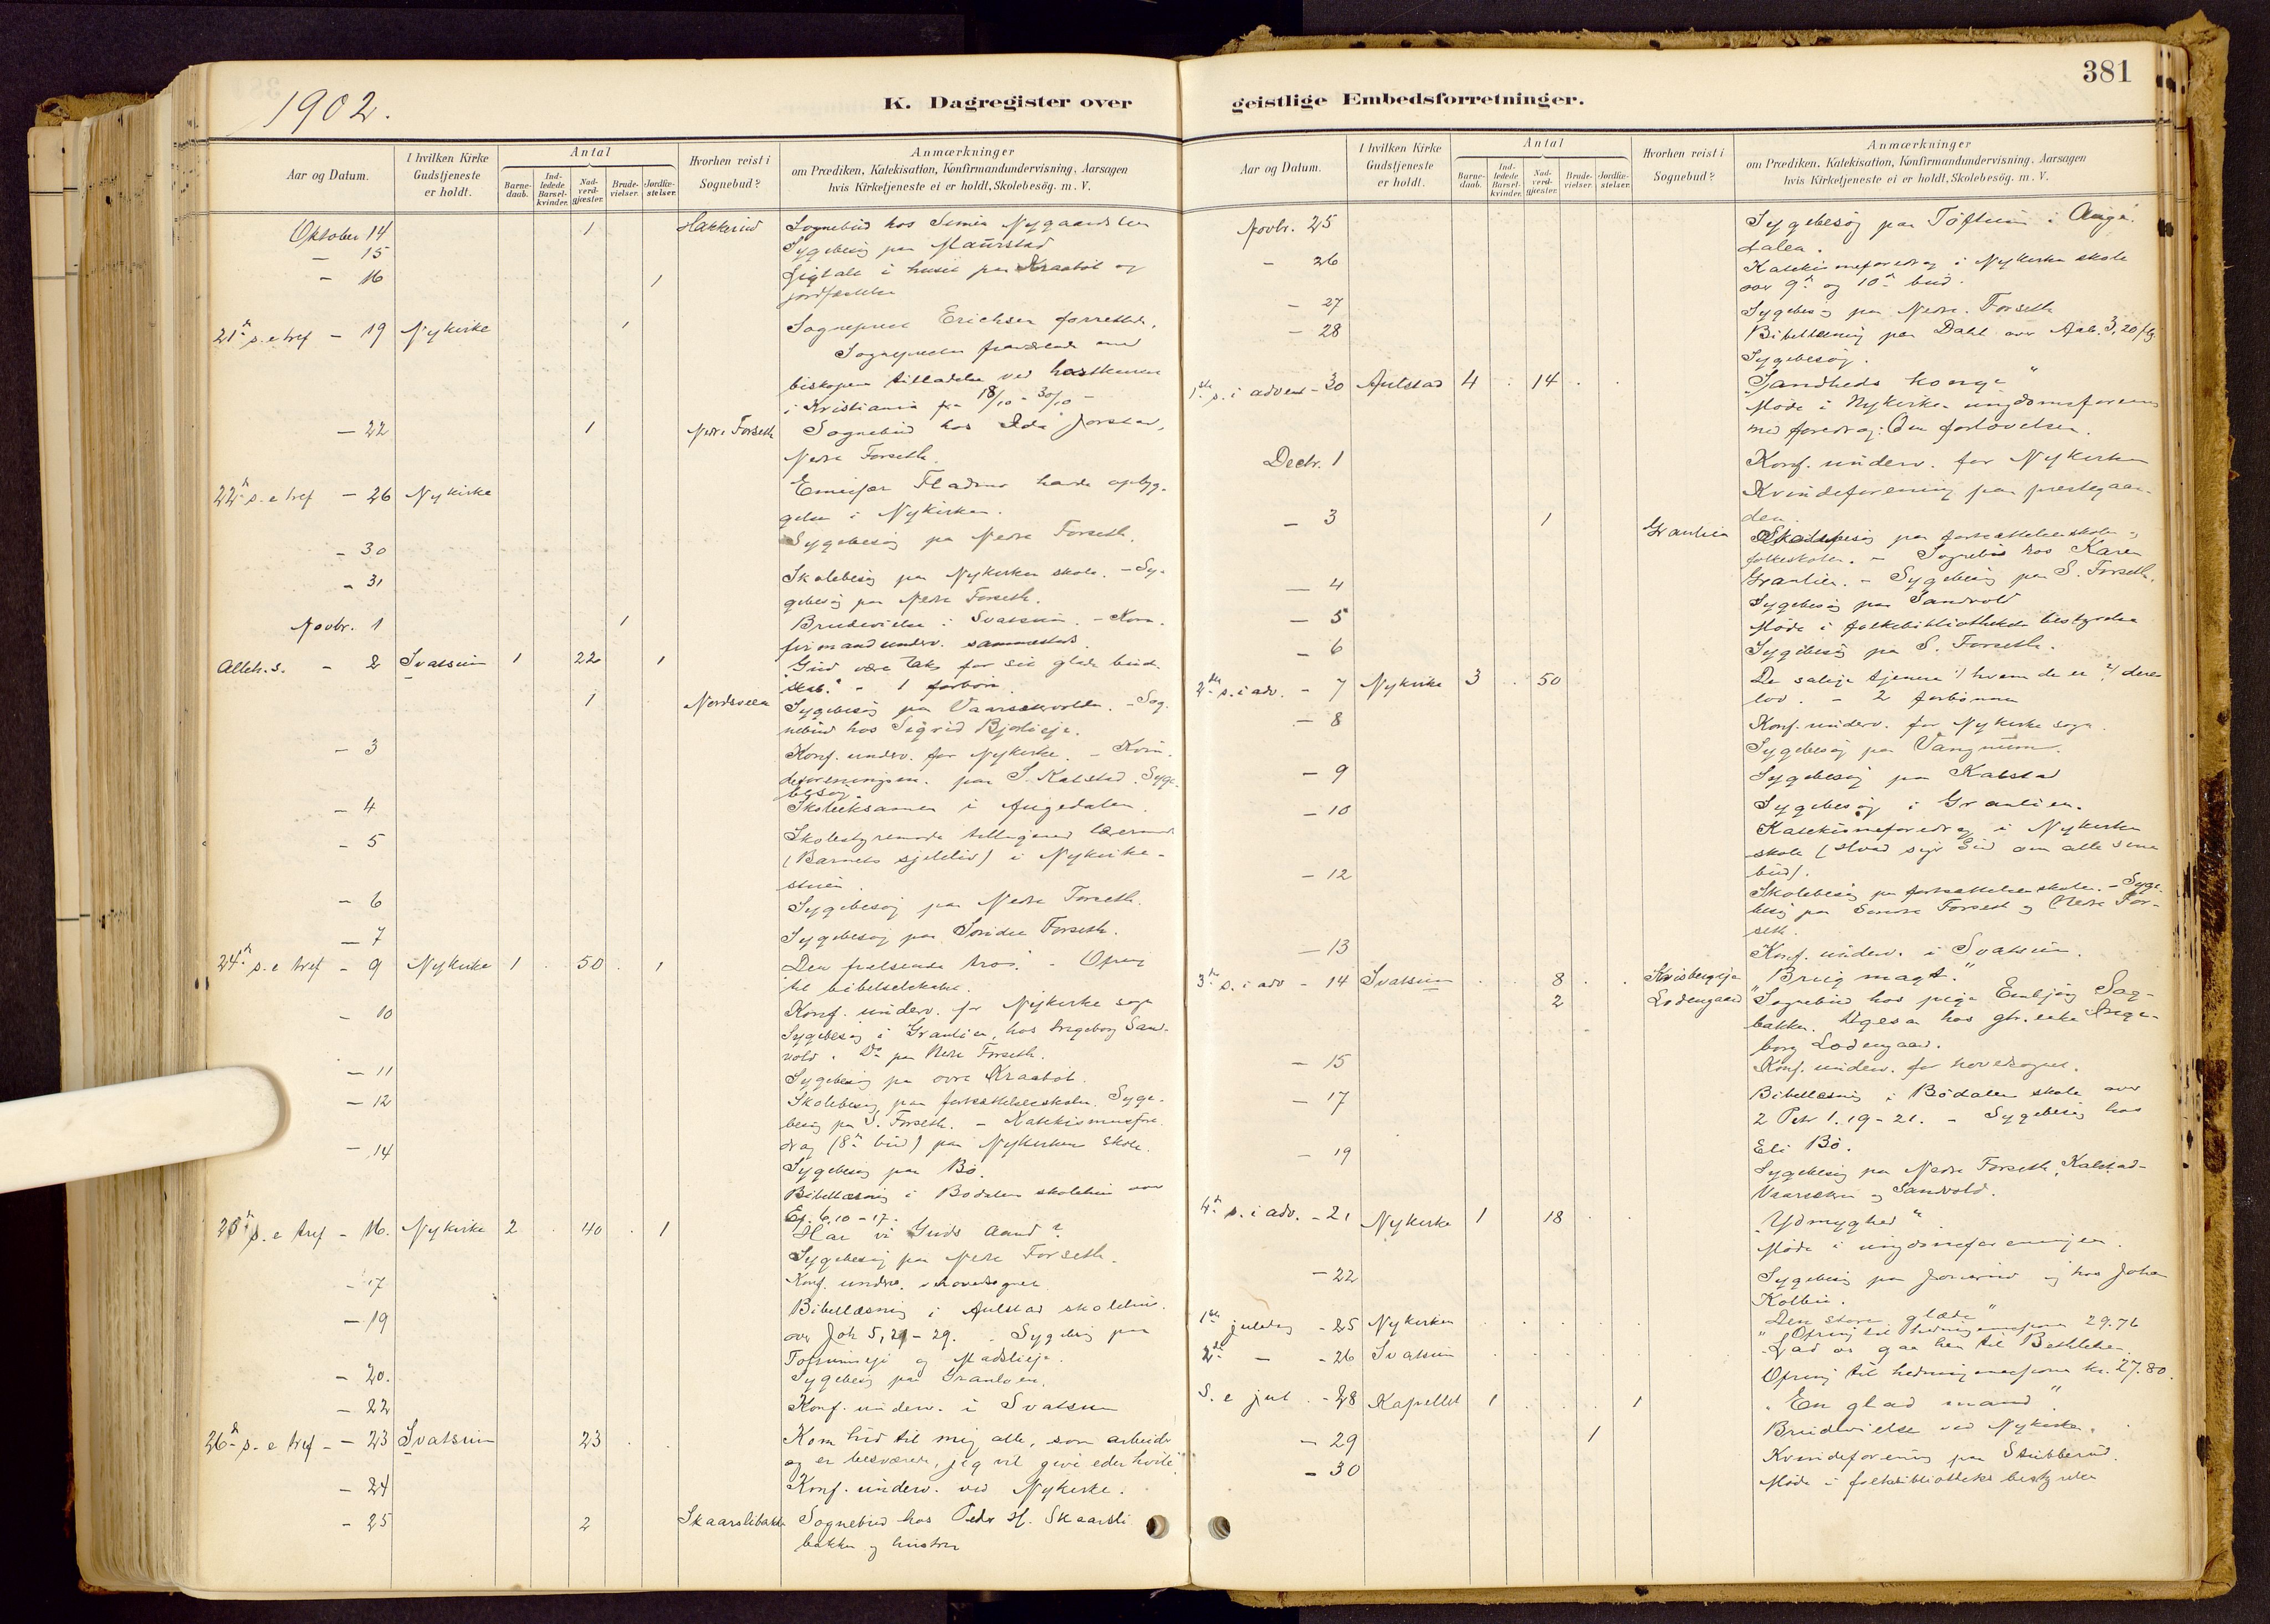 1902.
K. Dagregister over
Aar og Datum.
I hvilken Kirke Gudstjeneste er holdt.
Antal
Barne-daab.
Ind-ledede Barsel-kvinder.
Nad-verd-gjæster.
Brude-vielser.
Jordfæ-stelser.
Hvorhen reist i Sognebud?
Anmærkninger
om Prædiken, Katekisation, Konfirmandundervisning, Aarsagen
hvis Kirketjeneste ei er holdt, Skolebesög. m. V.
Oktober 14 1 Hakkerud Sognebud hos
— 15 Sygebesög paa Maurstad
— 16 1 Ligtale i huset paa Kraabøl og
jordfæstelse
21de s. e tref — 19 Nykirke 1 Sogneprest Erichsen forrettede.
Sognepresten fraværende med
biskopens tilladelse ved
i Kristiania fra 18/10 - 30/10 -
— 22 1 Nedre Forseth Sognebud hos Ida Jorstad,
Nedre Forseth.
22de s. e tref — 26 Nykirke
i Nykirken.
— 30 Sygebesög paa Nedre Forseth.
— 31 Skolebesög paa Nykirken skole. - Sy-
gebesög paa Nedre Forseth.
Novbr. 1 1 Brudevielse i Svatsum. - Kon-
firmandunderv. sammesteds
Alleh. s. — 2 Svatsum 1 22 1 Gud være taks for sit glade bud-
skab." - 1 forbøn.
1 Sygebesög paa - Sog-
nebud hos Sigrid Bjørlieje.
— 3 Konf. underv. for Nykirke. - Kvin-
deforeningen. paa S. Kalstad. Syge-
besög.
— 4 Skoleeksamen i Augedalen.
— 5 Skolestyremøde
(Barnets sjeleliv) i Nykirke-
stuen.
— 6 Sygebesög paa Nedre Forseth.
— 7 Sygebesög paa Søndre Forseth.
24de s. e tref — 9 Nykirke 1 50 1 Den frelsende tro." - Ofring
til bibelselskabet.
— 10 Konf. underv. for Nykirke sogn
Sygebesög i Granlien, hos Ingeborg Sand-
vold. Do paa Nedre Forseth.
— 11 Sygebesög paa øvre Kraabøl.
— 12 Skolebesög paa fortsættelsesskolen. Syge-
besög paa S. Forseth. - Katekismusfore-
drag (8de bud) paa Nykirken skole.
— 14 Sygebesög paa Bø.
Bibellæsning i Bødalen skolehus over
Ef. 6,10-17.
25de s. e tref — 16. Nykirke 2 40 1 Har vi Guds Aand?
Sygebesög paa Nedre Forseth.
— 17 Konf. underv.
— 19 Bibellæsning i Aulstad skolehus.
over Joh 5,21-29. Sygebesög paa
og Madslieje.
— 20. Sygebesög paa Granlien.
— 22 Konf. underv. i Svatsum
26de s. e tref — 23 Svatsum 23 Kom hid til mig alle, som arbeide
og er besværede, jeg vil give eder hvile"
— 24 Konf. underv. ved Nykirke.
— 25 2 Skaarslibakke Sognebud hos Peder H. Skaarsli-
bakken og hustru
381
geistlige Embedsforretninger.
Aar og Datum.
I hvilken Kirke Gudstjeneste er holdt.
Antal
Barne-daab.
Ind-ledede Barsel-kvinder.
Nad-verd-gjæster.
Brude-vielser.
Jordfæ-stelser.
Hvorhen reist i Sognebud?
Anmærkninger
om Prædiken, Katekisation, Konfirmandundervisning, Aarsagen
hvis Kirketjeneste ei er holdt, Skolebesög. m. V.
Novbr. 25 Sygebesög paa Töftum i Auge-
dalen.
— 26 Katekismeforedrag i Nykirken skole
over 9de og 10de bud.
— 27 Sygebesög paa Nedre Forseth
— 28 Bibellæsning paa Dahl over Aab. 3,20 flg.
Sygebesög.
1ste s. i advent — 30 Aulstad 4 14 "Sandheds konge"
Møde i Nykirkens ungdomsforening
med foredrag: Om forlovelsen.
Decbr. 1 Konf. underv. for Nykirken
Kvindeforening paa prestegaar-
den.
— 3 1 Granlien Skolebesög paa fortsættelsesskolen og
folkeskolen. - Sognebud hos Karen
Granlien. - Sygebesög paa S. Forseth.
— 4 Sygebesög paa Sandvold
— 5 Møde i folkebibliothekets bestyrelse
— 6 Sygebesög paa S. Forseth.
2den s. i adv. — 7 Nykirke 3 50 De salige tjenere 1) hvem de er 2) deres
lov. - 2 forbønner
— 8 Konf. underv. for Nykirke sogn.
Sygebesög paa Vangnum.
— 9 Sygebesög paa Kalstad
— 10 Sygebesög i Granlien.
Katekismeforedrag i Nykirken
skole (Hvad siger Gud om alle sine
bud).
— 12 Skolebesög paa fortsættelsesskolen. - Syge-
besög paa Søndre Forseth og Nedre For-
seth.
— 13 Konf. underv. i Svatsum.
3die s. i adv — 14 Svatsum 8 Krisbergeje "Brug magt."
2 Lodengaard Sognebud hos pige Embjørg Sag-
bakken. Ligesaa hos gbr.enke Inge-
borg Lodengaard.
— 15 Konf. underv. for hovedsognet.
— 17 Bibellæsning i Bödalen skole over
2 Petr 1.19-21. - Sygebesög hos
Eli Bö.
— 19 Sygebesög paa Nedre Forseth, Kalstad-
og Sandvold.
4de s. i adv. — 21 Nykirke 1 18 "Ydmyghed"
Møde i ungdomsforeningen.
— 22 Sygebesög paa og hos Johan
Kolbu.
1ste juledag — 25 Nykirken "Den store glæde"
Ofring til hedningemissionen 29.76
2den — — 26 Svatsum "Lad os gaa hen til Bethlehem
Ofring til hedningemissionen kr. 27.80.
S. e jul — 28 Kapellet 1 1 "En glad mand".
— 29 1 Brudevielse ved Nykirke.
— 30 Kvindeforening paa Stubberud.
Møde i folkebibliotheks bestyrelse